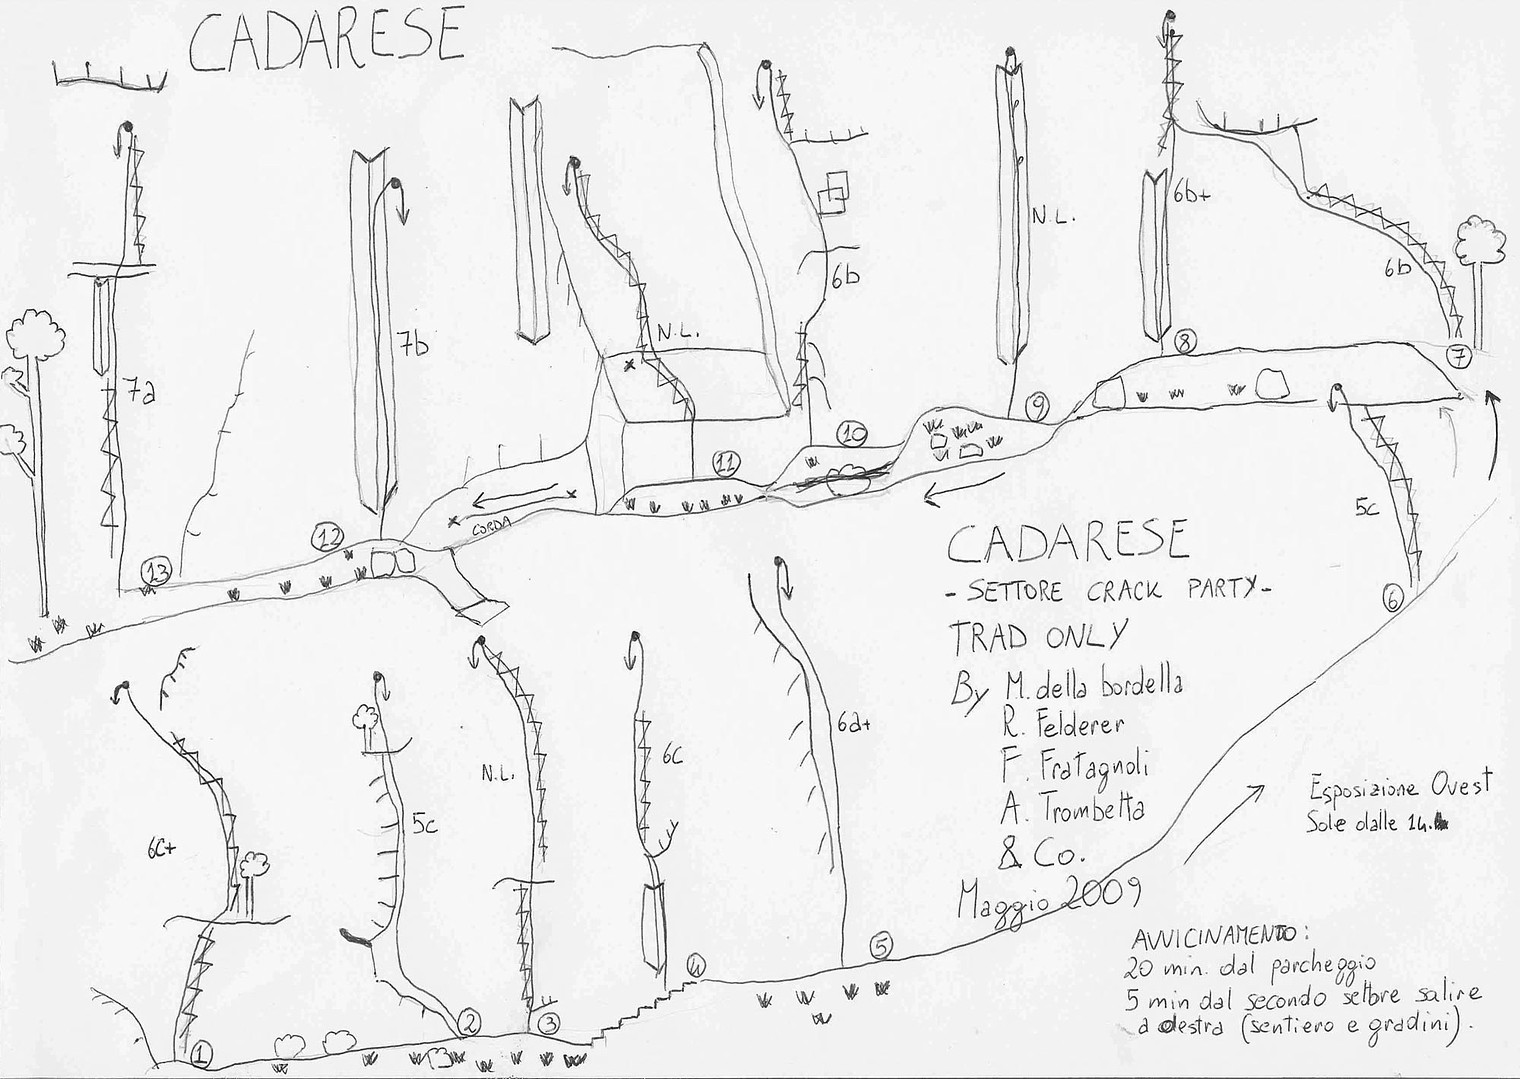 CADARESE
6b+
N.L.
6b
6b
7b
N.L.
7a
8
7
9
10
11
5c
CORDA
12
13
6
CADARESE
- SETTORE CRACK PARTY -
TRAD ONLY
By M. della bordella
R. Felderer
F. Fratagnoli
A. Trombetta
& Co.
Maggio 2009
6a+
6c
N.L.
5c
6c+
Esposizione Ovest
Sole dalle 14.
5
4
2
3
1
AVVICINAMENTO:
20 min. dal parcheggio
5 min dal secondo settore salire
a destra (sentiero e gradini).